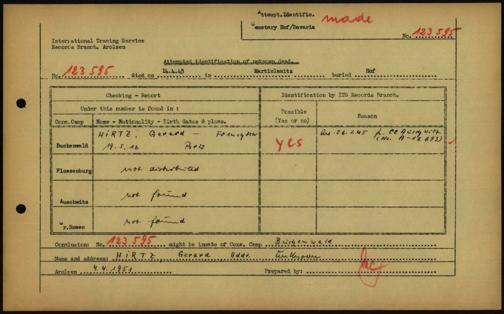 Attempt.Identific. made
Cemetery Hof/Bavaria
No. 123595
International Tracing Service
Records Branch, Arolsen
Attempted identification of unknown dead.
No. 123595 died on 14.4.45 in Martinlamitz buried Hof
Checking - Report
Identification by ITS Records Branch.
Under this number is found in :
Possible (Yes or no)
Reason
Conc.Camp
Name - Nationality - Birth dates & place.
Buchenwald
HIRTZ, Gerard - 
19.5.16 Paris
yes
Flossenburg
not distributed
Auschwitz
not found
Gr.Rosen
not found
Conclusion: No. 123595 might be inmate of Conc. Camp Buchenwald
Name and address: HIRTZ, Gerard Addr. Unknown
Arolsen 4.4.1951 Prepared by: